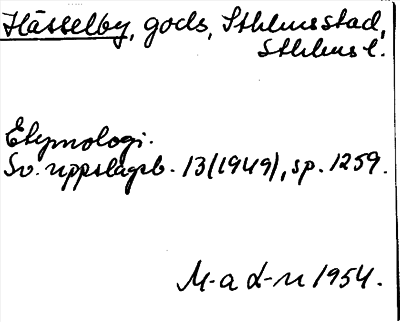 Hässelby, gods, Sthlms stad,
Sthlms l.
Etymologi.
Sv. uppslagsb. 13 (1949), sp. 1259.
M-a d-n 1954.